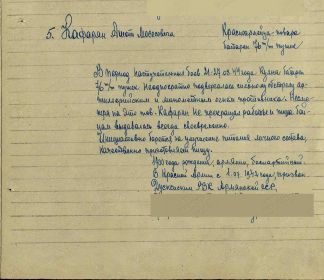 5. Кафарян Ашот Мосесович
Красноармейца-повара
батареи 76 м/м пушек
В период наступательных боев 21-27.03.44 года. Кухня батареи
76 м/м пушек неоднократно подвергалась сильному обстрелу ар-
тиллерийским и минометным огнем противника. Несмо-
тря на это тов. Кафарян не прекращал работы и пища бой-
цам выдавалась всегда своевременно.
Инициативно борется за улучшение питания личного состава,
качественно приготовляет пищу.
1900 года рождения, армянин, беспартийный.
В Красной Армии с 1942 года, призван
РВК Армянской ССР.